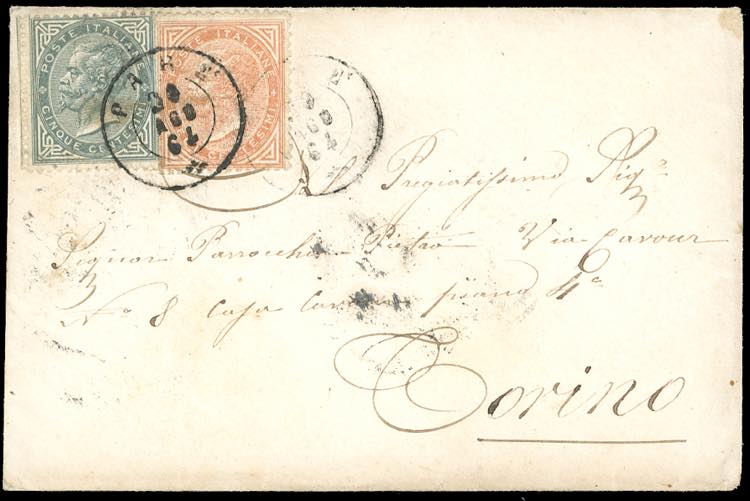 POSTE ITALIANE
CINQUE CENTESIMI
POSTE ITALIANE
CENTESIMI
AGO
64
Al Pregiatissimo Sig.e
Signor Parrocchia Pietro Via Cavour
No 8 casa piano 4o
Torino